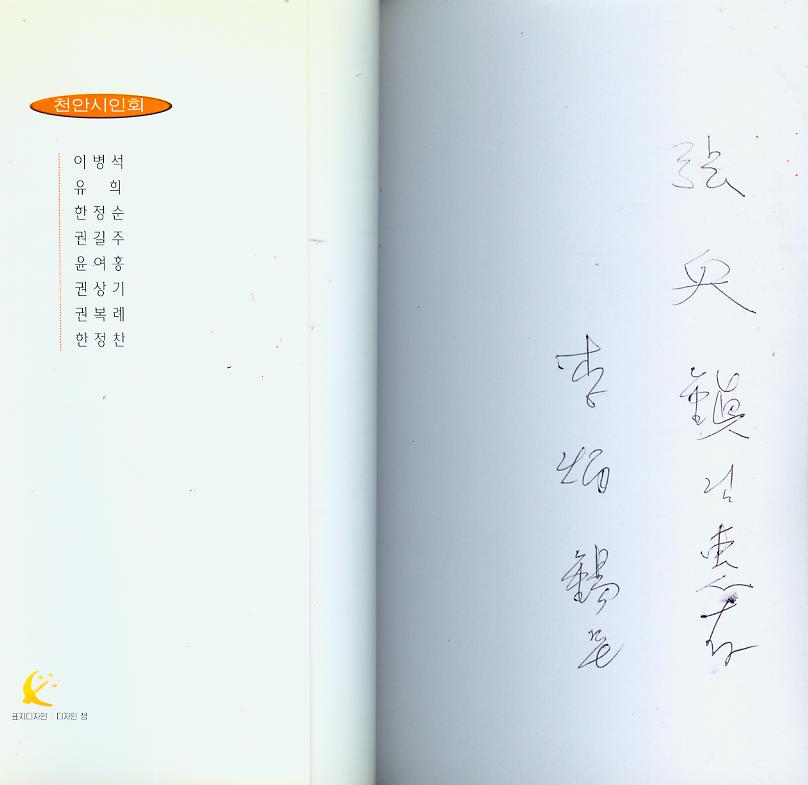 천안시인회
이병석
유 희
한정순
권길주
윤여홍
권상기
권복례
한정찬
표지디자인 : 디자인 샘
張 鎭 님 惠存
李炳錫